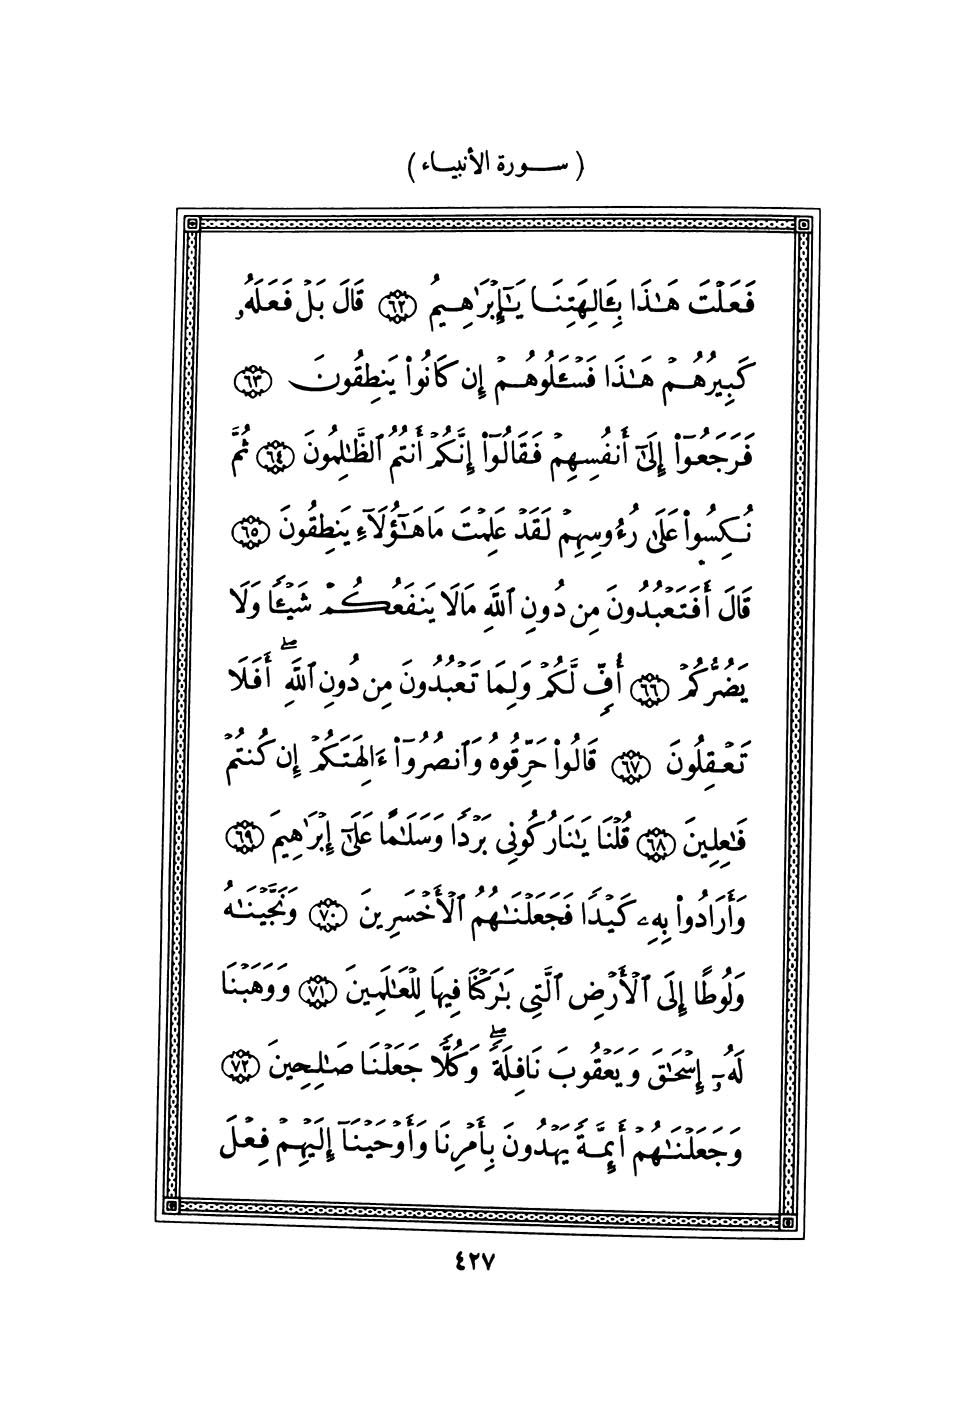 ( سورة الأنبياء )
فَعَلْتَ هَـٰذَا بِـَٔالِهَتِنَا يَـٰٓإِبْرَٰهِيمُ ٦٢ قَالَ بَلْ فَعَلَهُۥ
كَبِيرُهُمْ هَـٰذَا فَسْـَٔلُوهُمْ إِن كَانُوا۟ يَنطِقُونَ ٦٣
فَرَجَعُوٓا۟ إِلَىٰٓ أَنفُسِهِمْ فَقَالُوٓا۟ إِنَّكُمْ أَنتُمُ ٱلظَّـٰلِمُونَ ٦٤ ثُمَّ
نُكِسُوا۟ عَلَىٰ رُءُوسِهِمْ لَقَدْ عَلِمْتَ مَا هَـٰٓؤُلَآءِ يَنطِقُونَ ٦٥
قَالَ أَفَتَعْبُدُونَ مِن دُونِ ٱللَّهِ مَا لَا يَنفَعُكُمْ شَيْـًٔا وَلَا
يَضُرُّكُمْ ٦٦ أُفٍّ لَّكُمْ وَلِمَا تَعْبُدُونَ مِن دُونِ ٱللَّهِ ۖ أَفَلَا
تَعْقِلُونَ ٦٧ قَالُوا۟ حَرِّقُوهُ وَٱنصُرُوٓا۟ ءَالِهَتَكُمْ إِن كُنتُمْ
فَـٰعِلِينَ ٦٨ قُلْنَا يَـٰنَارُ كُونِى بَرْدًا وَسَلَـٰمًا عَلَىٰٓ إِبْرَٰهِيمَ ٦٩
وَأَرَادُوا۟ بِهِۦ كَيْدًا فَجَعَلْنَـٰهُمُ ٱلْأَخْسَرِينَ ٧٠ وَنَجَّيْنَـٰهُ
وَلُوطًا إِلَى ٱلْأَرْضِ ٱلَّتِى بَـٰرَكْنَا فِيهَا لِلْعَـٰلَمِينَ ٧١ وَوَهَبْنَا
لَهُۥٓ إِسْحَـٰقَ وَيَعْقُوبَ نَافِلَةً ۖ وَكُلًّا جَعَلْنَا صَـٰلِحِينَ ٧٢
وَجَعَلْنَـٰهُمْ أَئِمَّةً يَهْدُونَ بِأَمْرِنَا وَأَوْحَيْنَآ إِلَيْهِمْ فِعْلَ
٤٢٧